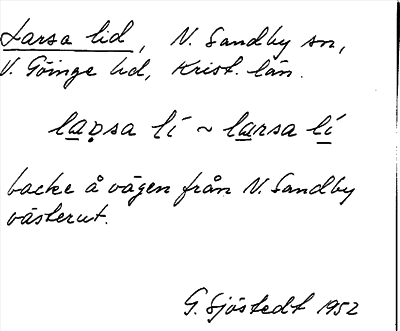 Larsa lid, N. Sandby sn,
V. Göinge hd, Krist. län.
laꝛsa lí ~ larsa lí
backe å vägen från N. Sandby
västerut.
G. Sjöstedt 1952